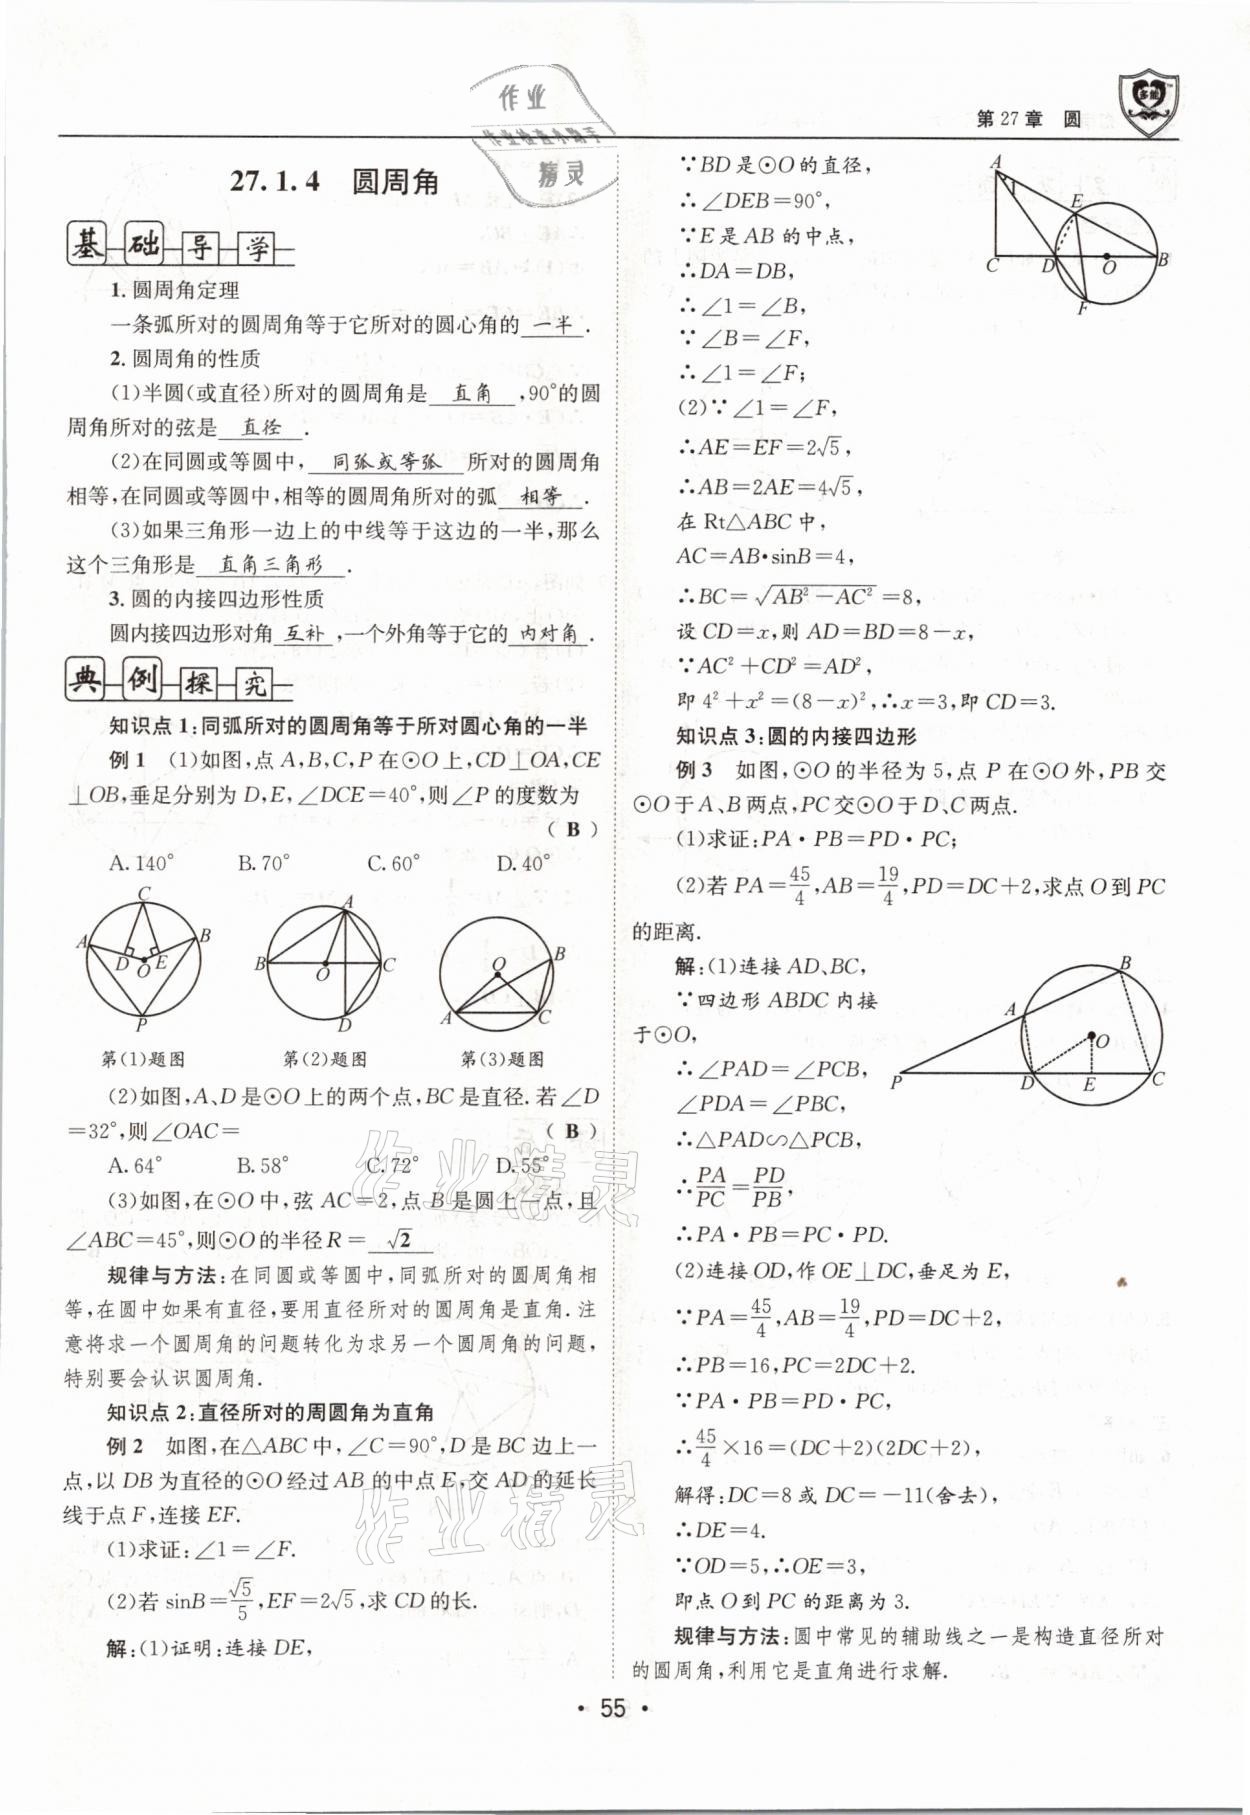 作业
作业检查小助手
精灵
第27章 圆
多能
27.1.4 圆周角
基础导学
1.圆周角定理
一条弧所对的圆周角等于它所对的圆心角的 一半 .
2.圆周角的性质
(1)半圆(或直径)所对的圆周角是 直角 ,90°的圆
周角所对的弦是 直径 .
(2)在同圆或等圆中, 同弧或等弧 所对的圆周角
相等,在同圆或等圆中,相等的圆周角所对的弧 相等 .
(3)如果三角形一边上的中线等于这边的一半,那么
这个三角形是 直角三角形 .
3.圆的内接四边形性质
圆内接四边形对角 互补 ,一个外角等于它的 内对角 .
典例探究
知识点1:同弧所对的圆周角等于所对圆心角的一半
例1 (1)如图,点A,B,C,P在⊙O上,CD⊥OA,CE
⊥OB,垂足分别为D,E,∠DCE=40°,则∠P的度数为
( B )
A.140° B.70° C.60° D.40°
C A B D O E P
A B O C D
O B A C
第(1)题图 第(2)题图 第(3)题图
(2)如图,A、D是⊙O上的两个点,BC是直径.若∠D
=32°,则∠OAC= ( B )
A.64° B.58° C.72° D.55°
(3)如图,在⊙O中,弦AC=2,点B是圆上一点,且
∠ABC=45°,则⊙O的半径R= √2
规律与方法:在同圆或等圆中,同弧所对的圆周角相
等,在圆中如果有直径,要用直径所对的圆周角是直角.注
意将求一个圆周角的问题转化为求另一个圆周角的问题,
特别要会认识圆周角.
知识点2:直径所对的周圆角为直角
例2 如图,在△ABC中,∠C=90°,D是BC边上一
点,以DB为直径的⊙O经过AB的中点E,交AD的延长
线于点F,连接EF.
(1)求证:∠1=∠F.
(2)若sinB=√5/5,EF=2√5,求CD的长.
解:(1)证明:连接DE,
∵BD是⊙O的直径,
∴∠DEB=90°,
∵E是AB的中点,
∴DA=DB,
∴∠1=∠B,
∵∠B=∠F,
∴∠1=∠F;
A 1 E C D O B F
(2)∵∠1=∠F,
∴AE=EF=2√5,
∴AB=2AE=4√5,
在Rt△ABC中,
AC=AB•sinB=4,
∴BC=√(AB²-AC²)=8,
设CD=x,则AD=BD=8-x,
∵AC²+CD²=AD²,
即4²+x²=(8-x)²,∴x=3,即CD=3.
知识点3:圆的内接四边形
例3 如图,⊙O的半径为5,点P在⊙O外,PB交
⊙O于A、B两点,PC交⊙O于D、C两点.
(1)求证:PA·PB=PD·PC;
(2)若PA=45/4,AB=19/4,PD=DC+2,求点O到PC
的距离.
解:(1)连接AD、BC,
∵四边形ABDC内接
于⊙O,
∴∠PAD=∠PCB,
∠PDA=∠PBC,
∴△PAD∽△PCB,
∴PA/PC=PD/PB,
∴PA·PB=PC·PD.
B A O P D E C
(2)连接OD,作OE⊥DC,垂足为E,
∵PA=45/4,AB=19/4,PD=DC+2,
∴PB=16,PC=2DC+2.
∵PA·PB=PD·PC,
∴45/4×16=(DC+2)(2DC+2),
解得:DC=8或DC=-11(舍去),
∴DE=4.
∵OD=5,∴OE=3,
即点O到PC的距离为3.
规律与方法:圆中常见的辅助线之一是构造直径所对
的圆周角,利用它是直角进行求解.
作业精灵
作业精灵
· 55 ·